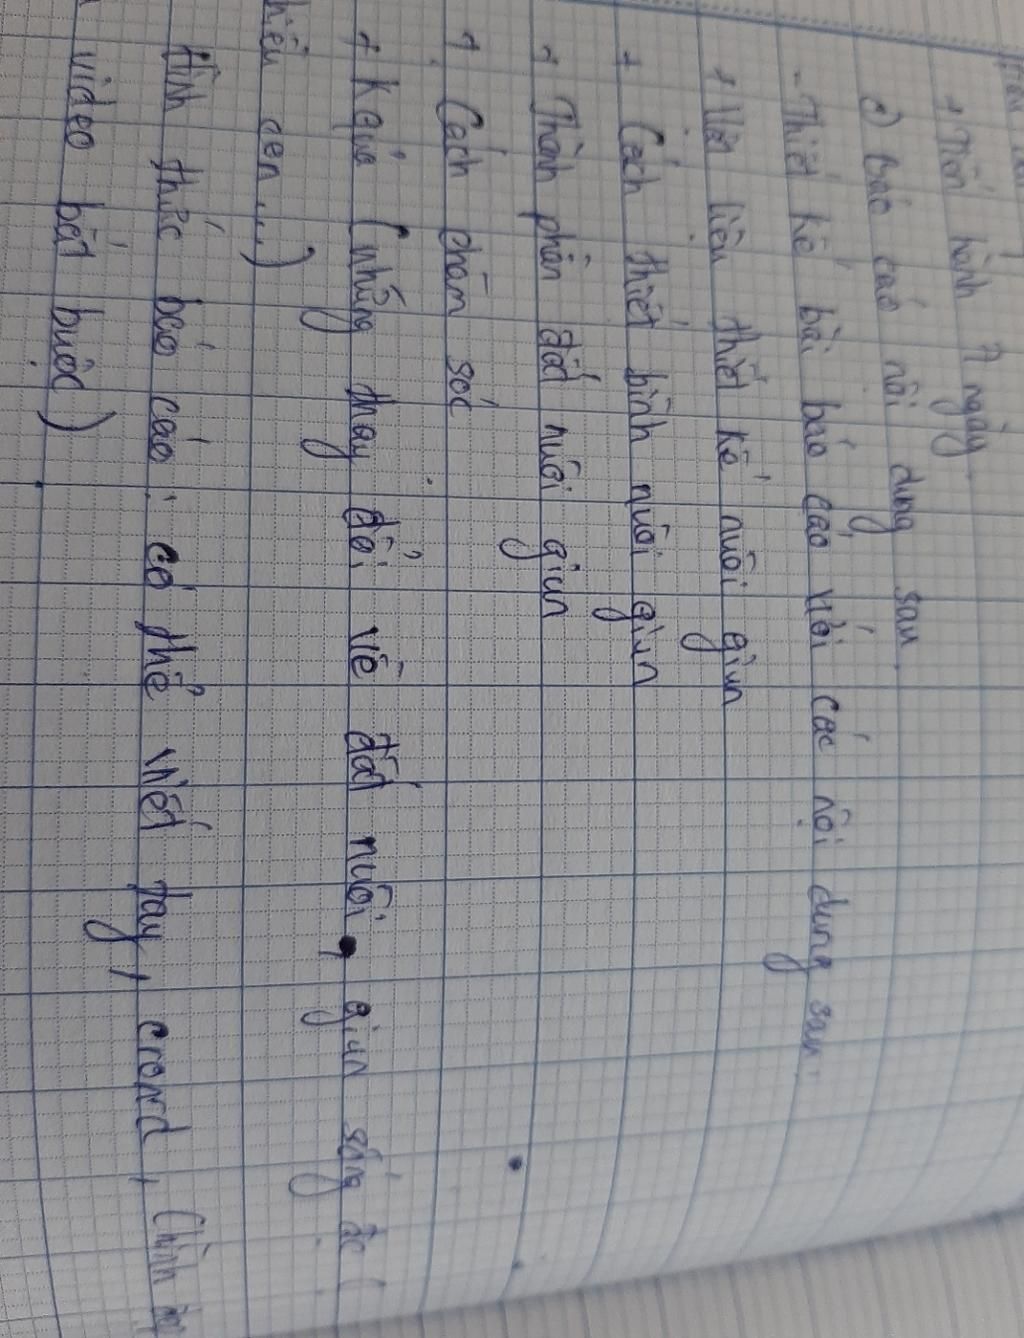 + Tiến hành 7 ngày.
c) báo cáo nội dung sau.
- Thiết kế bài báo cáo với các nội dung sau:
+ Vật liệu thiết kế nuôi giun
+ Cách thiết bình nuôi giun
+ Thành phần đất nuôi giun
+ Cách chăm sóc
+ Kquả (những thay đổi về đất nuôi, giun sống đc (
đen...)
Hình thức báo cáo: có thể viết tay, cronrd, (hình
video bắt buộc)